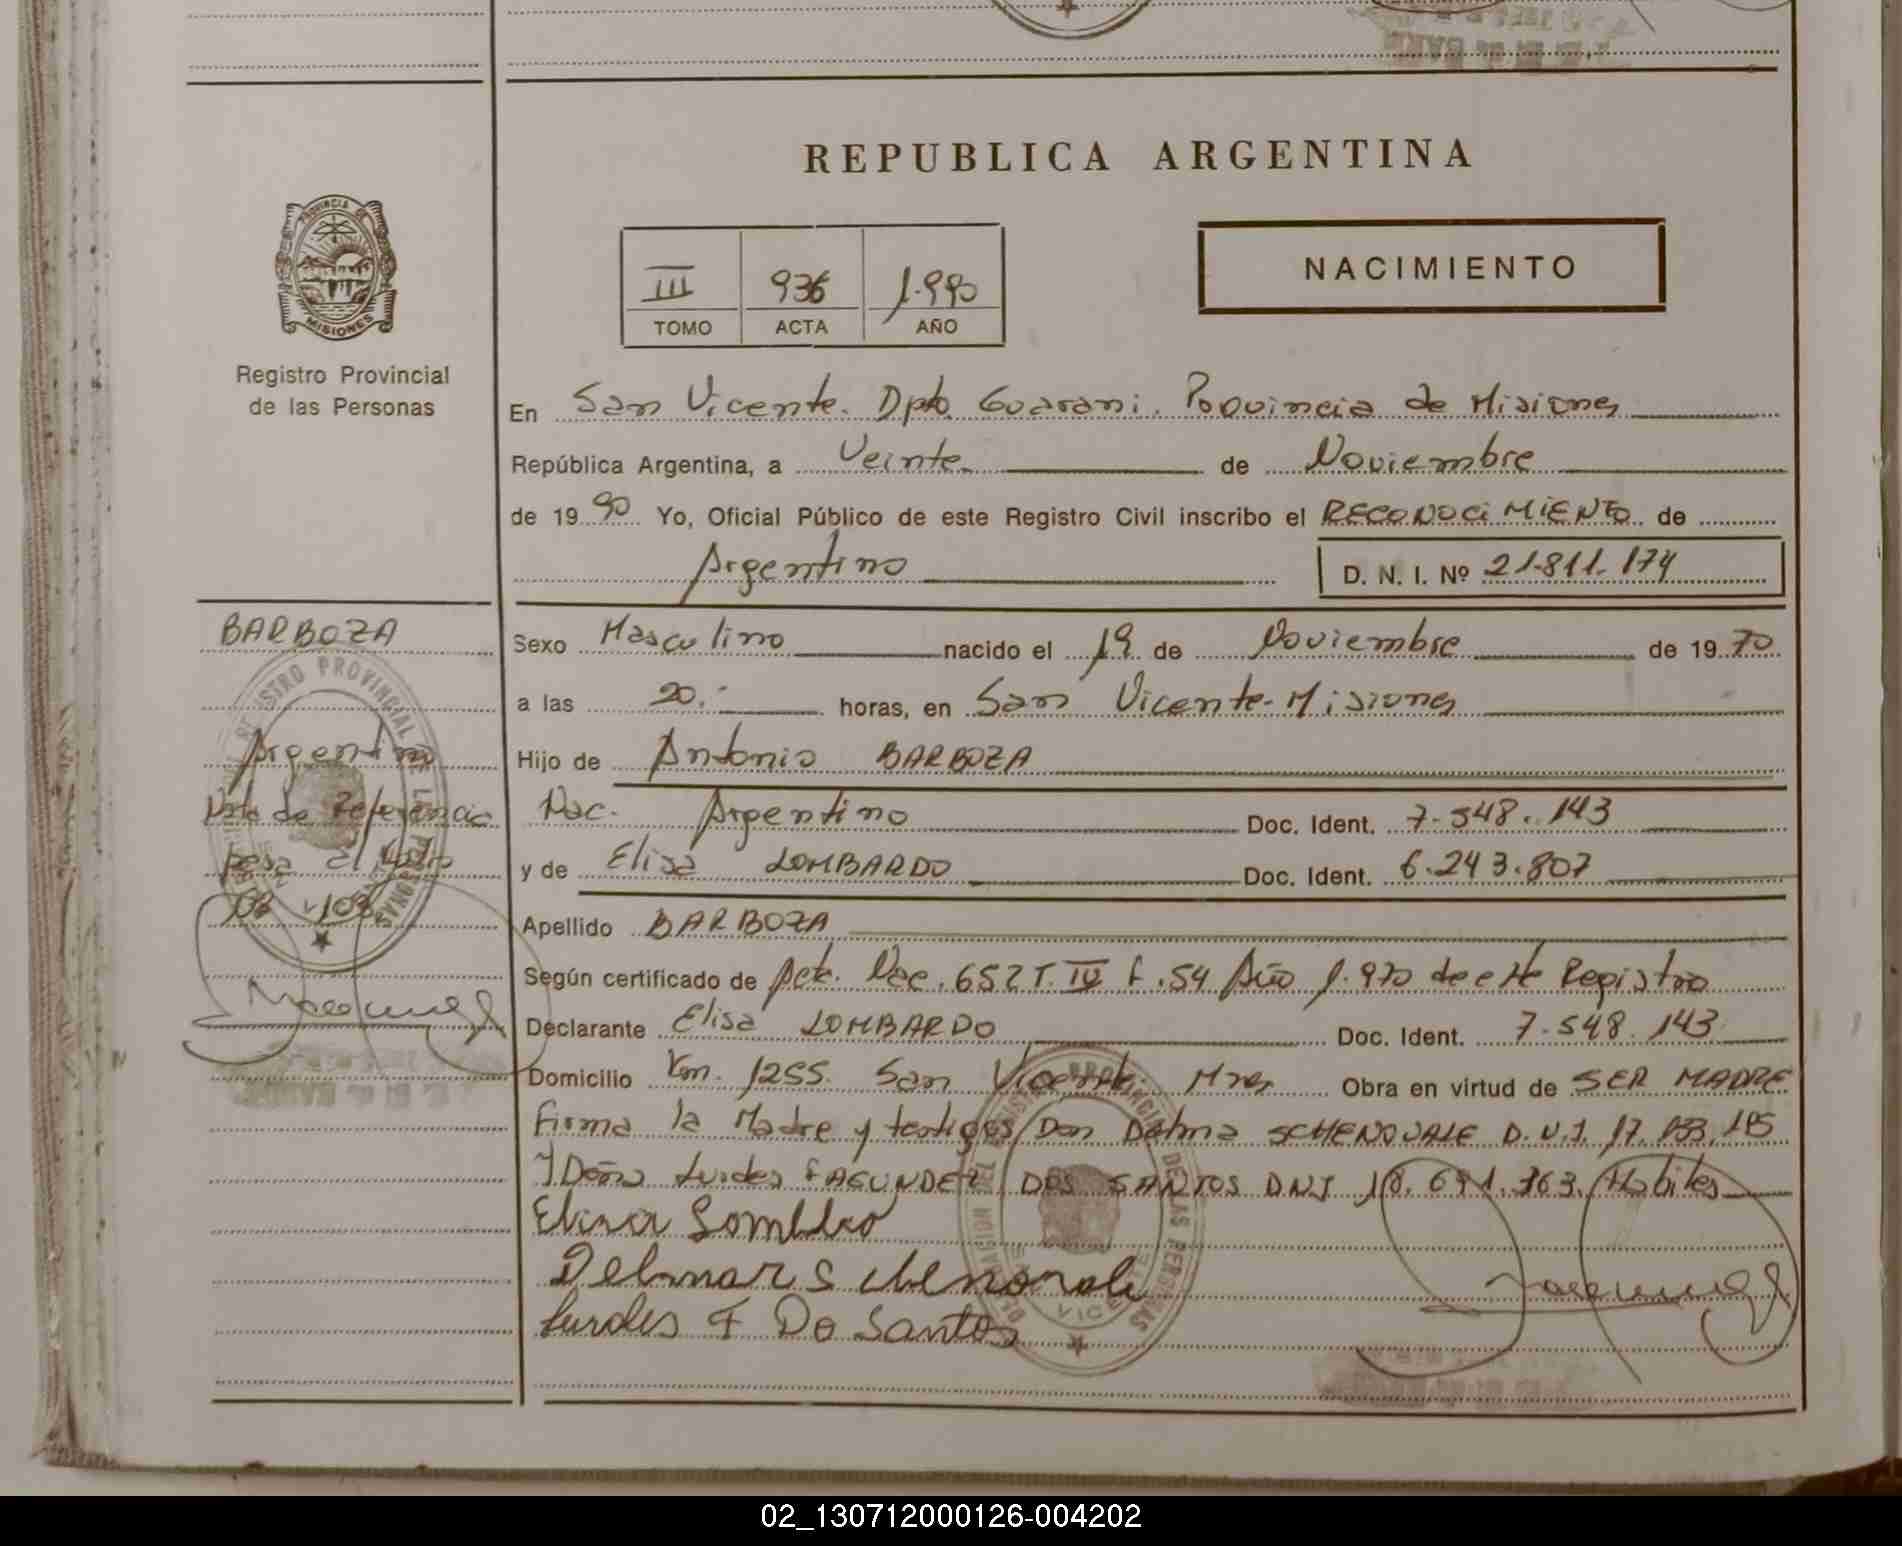 REPUBLICA ARGENTINA
PROVINCIA DE
MISIONES
Registro Provincial
de las Personas
III 936 1.990
TOMO ACTA AÑO
NACIMIENTO
En San Vicente. Dpto Guarani. Poovincia de Misiones
República Argentina, a Veinte. de Noviembre
de 1990 Yo, Oficial Público de este Registro Civil inscribo el RECONOCIMIENTO de
Argentino D. N. I. Nº 21.811.174
BARBOZA
Argentino
Nota de Referencia
pasa al folio
Sexo Masculino nacido el 19 de Noviembre de 1970
a las 20.- horas, en San Vicente-Misiones
Hijo de Antonio BARBOZA
Nac. Argentino Doc. Ident. 7.548.143
y de Elisa LOMBARDO Doc. Ident. 6.243.807
Apellido BARBOZA
Según certificado de Act. Nac. 652 T. IV F.54 Año 1.970 de este Registro
Declarante Elisa LOMBARDO Doc. Ident. 7.548.143
Domicilio Km. 1255. San Vicente. Mnes Obra en virtud de SER MADRE
Firma la Madre y testigos Don SCHENOVALE D.N.I. 17.
Y Doña Lurdes FAGUNDEZ DOS SANTOS DNI 18.691.363. Habiles
Elisa Lombardo
Delmar Schenovale
Lurdes F Do Santos
02_130712000126-004202